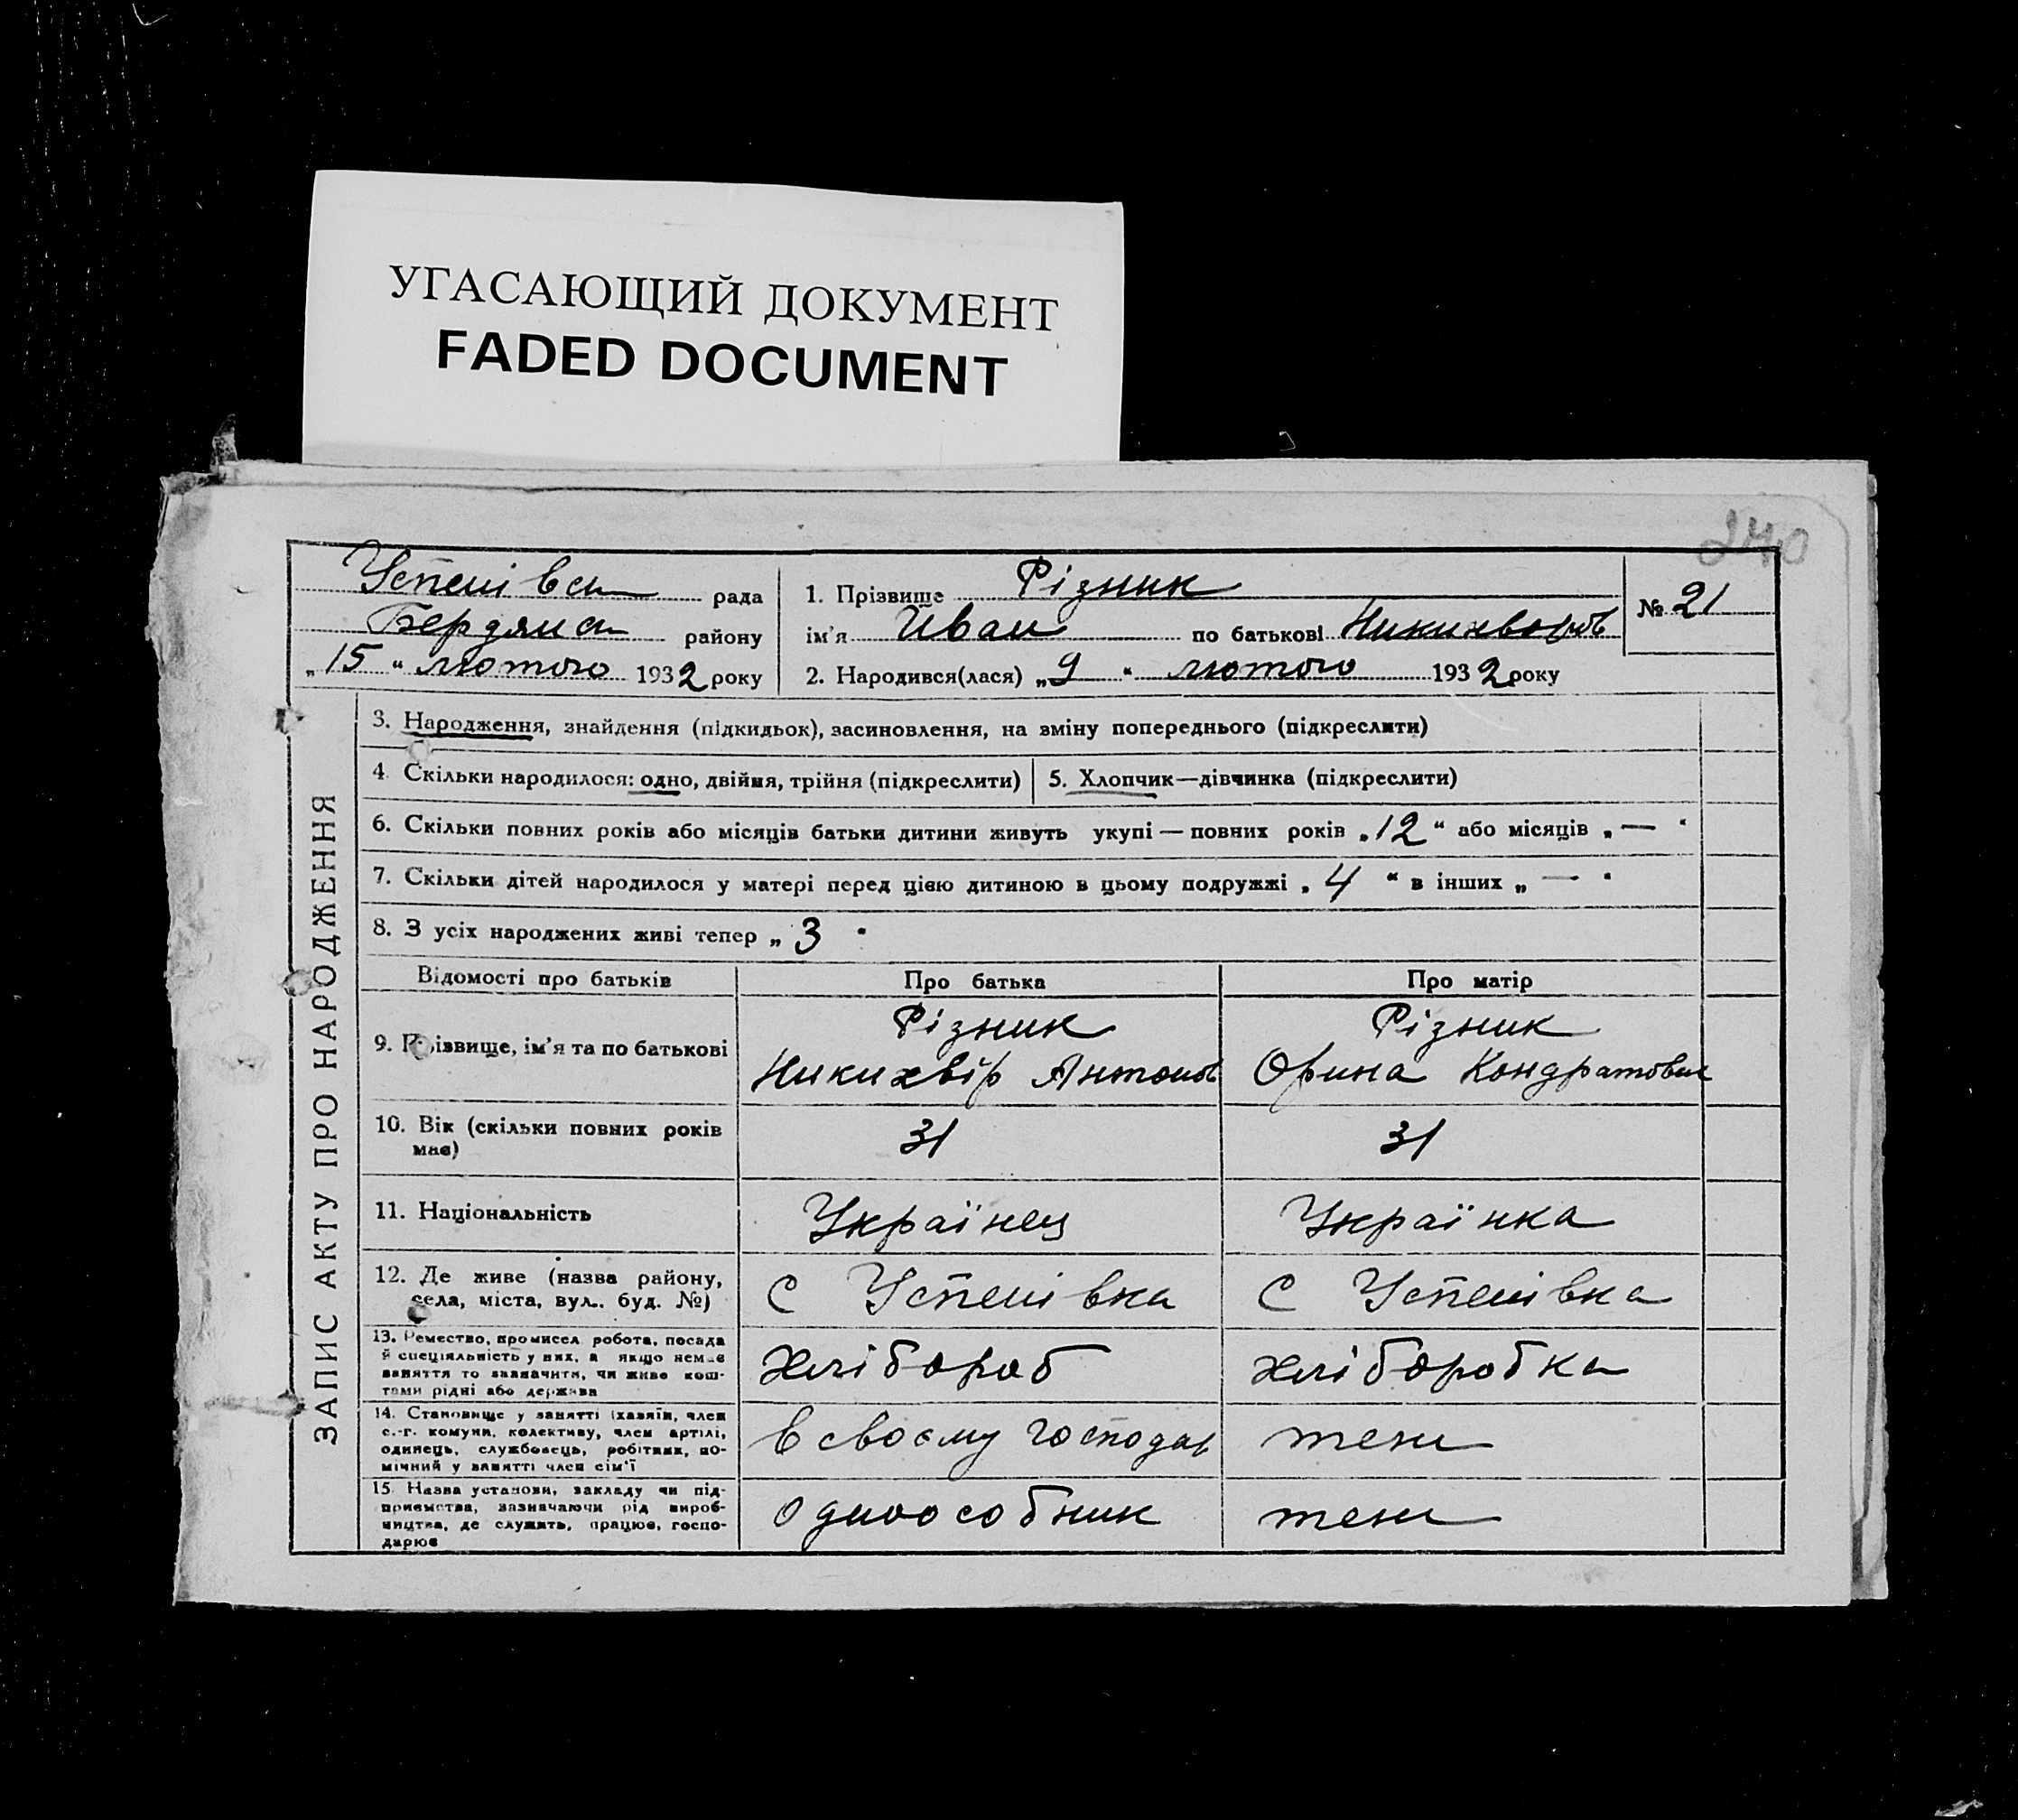 УГАСАЮЩИЙ ДОКУМЕНТ
FADED DOCUMENT
240
Успенівсь рада
Бердянсь району
„15“ лютого 1932 року
1. Прізвище Різник
ім’я Иван по батькові Никихворів
2. Народився(лася) „9“ лютого 1932 року
№ 21
ЗАПИС АКТУ ПРО НАРОДЖЕННЯ
3. Народження, знайдення (підкидьок), засиновлення, на зміну попереднього (підкреслити)
4. Скільки народилося: одно, двійня, трійня (підкреслити)
5. Хлопчик—дівчинка (підкреслити)
6. Скільки повних років або місяців батьки дитини живуть укупі — повних років „12“ або місяців „—“
7. Скільки дітей народилося у матері перед цією дитиною в цьому подружжі „4“ в інших „—“
8. З усіх народжених живі тепер „3“
Відомості про батьків Про батька Про матір
9. Прізвище, ім’я та по батькові
Різник
Никихвір Антонов
Різник
Орина Кондратовна
10. Вік (скільки повних років
має)
31
31
11. Національність
Українец
Українка
12. Де живе (назва району,
села, міста, вул., буд. №)
с Успенівка
с Успенівка
13. Ремество, промисел, робота, посада
й спеціяльність у них, а якщо немає
заняття то зазначити, чи живе кош-
тами рідні або держава
хлібороб
хліборобка
14. Становище у занятті (хазяїн, член
с.-г. комуни, колективу, член артілі,
одинець, службовець, робітник, по-
мічний у занятті член сім’ї
в своєму господар
теж
15. Назва установи, закладу чи під-
приємства, зазначаючи рід вироб-
ництва, де служить, працює, госпо-
дарює
одноособник
теж